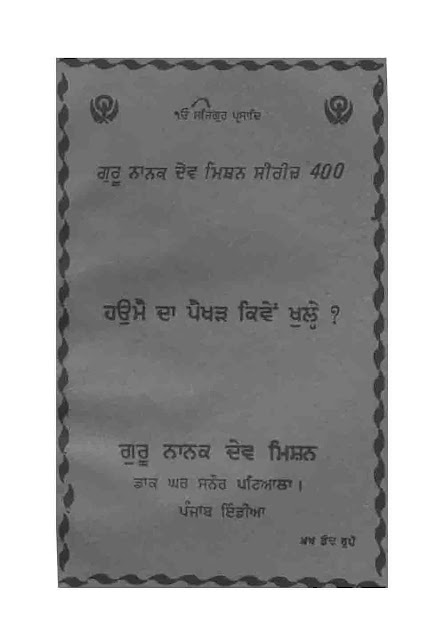 ੴ ਸਤਿਗੁਰ ਪ੍ਰਸਾਦਿ
ਗੁਰੂ ਨਾਨਕ ਦੇਵ ਮਿਸ਼ਨ ਸੀਰੀਜ਼ 400
ਹਉਮੈ ਦਾ ਪੈਖੜ ਕਿਵੇਂ ਖੁਲ੍ਹੇ ?
ਗੁਰੂ ਨਾਨਕ ਦੇਵ ਮਿਸ਼ਨ
ਡਾਕ ਘਰ ਸਨੌਰ ਪਟਿਆਲਾ ।
ਪੰਜਾਬ ਇੰਡੀਆ